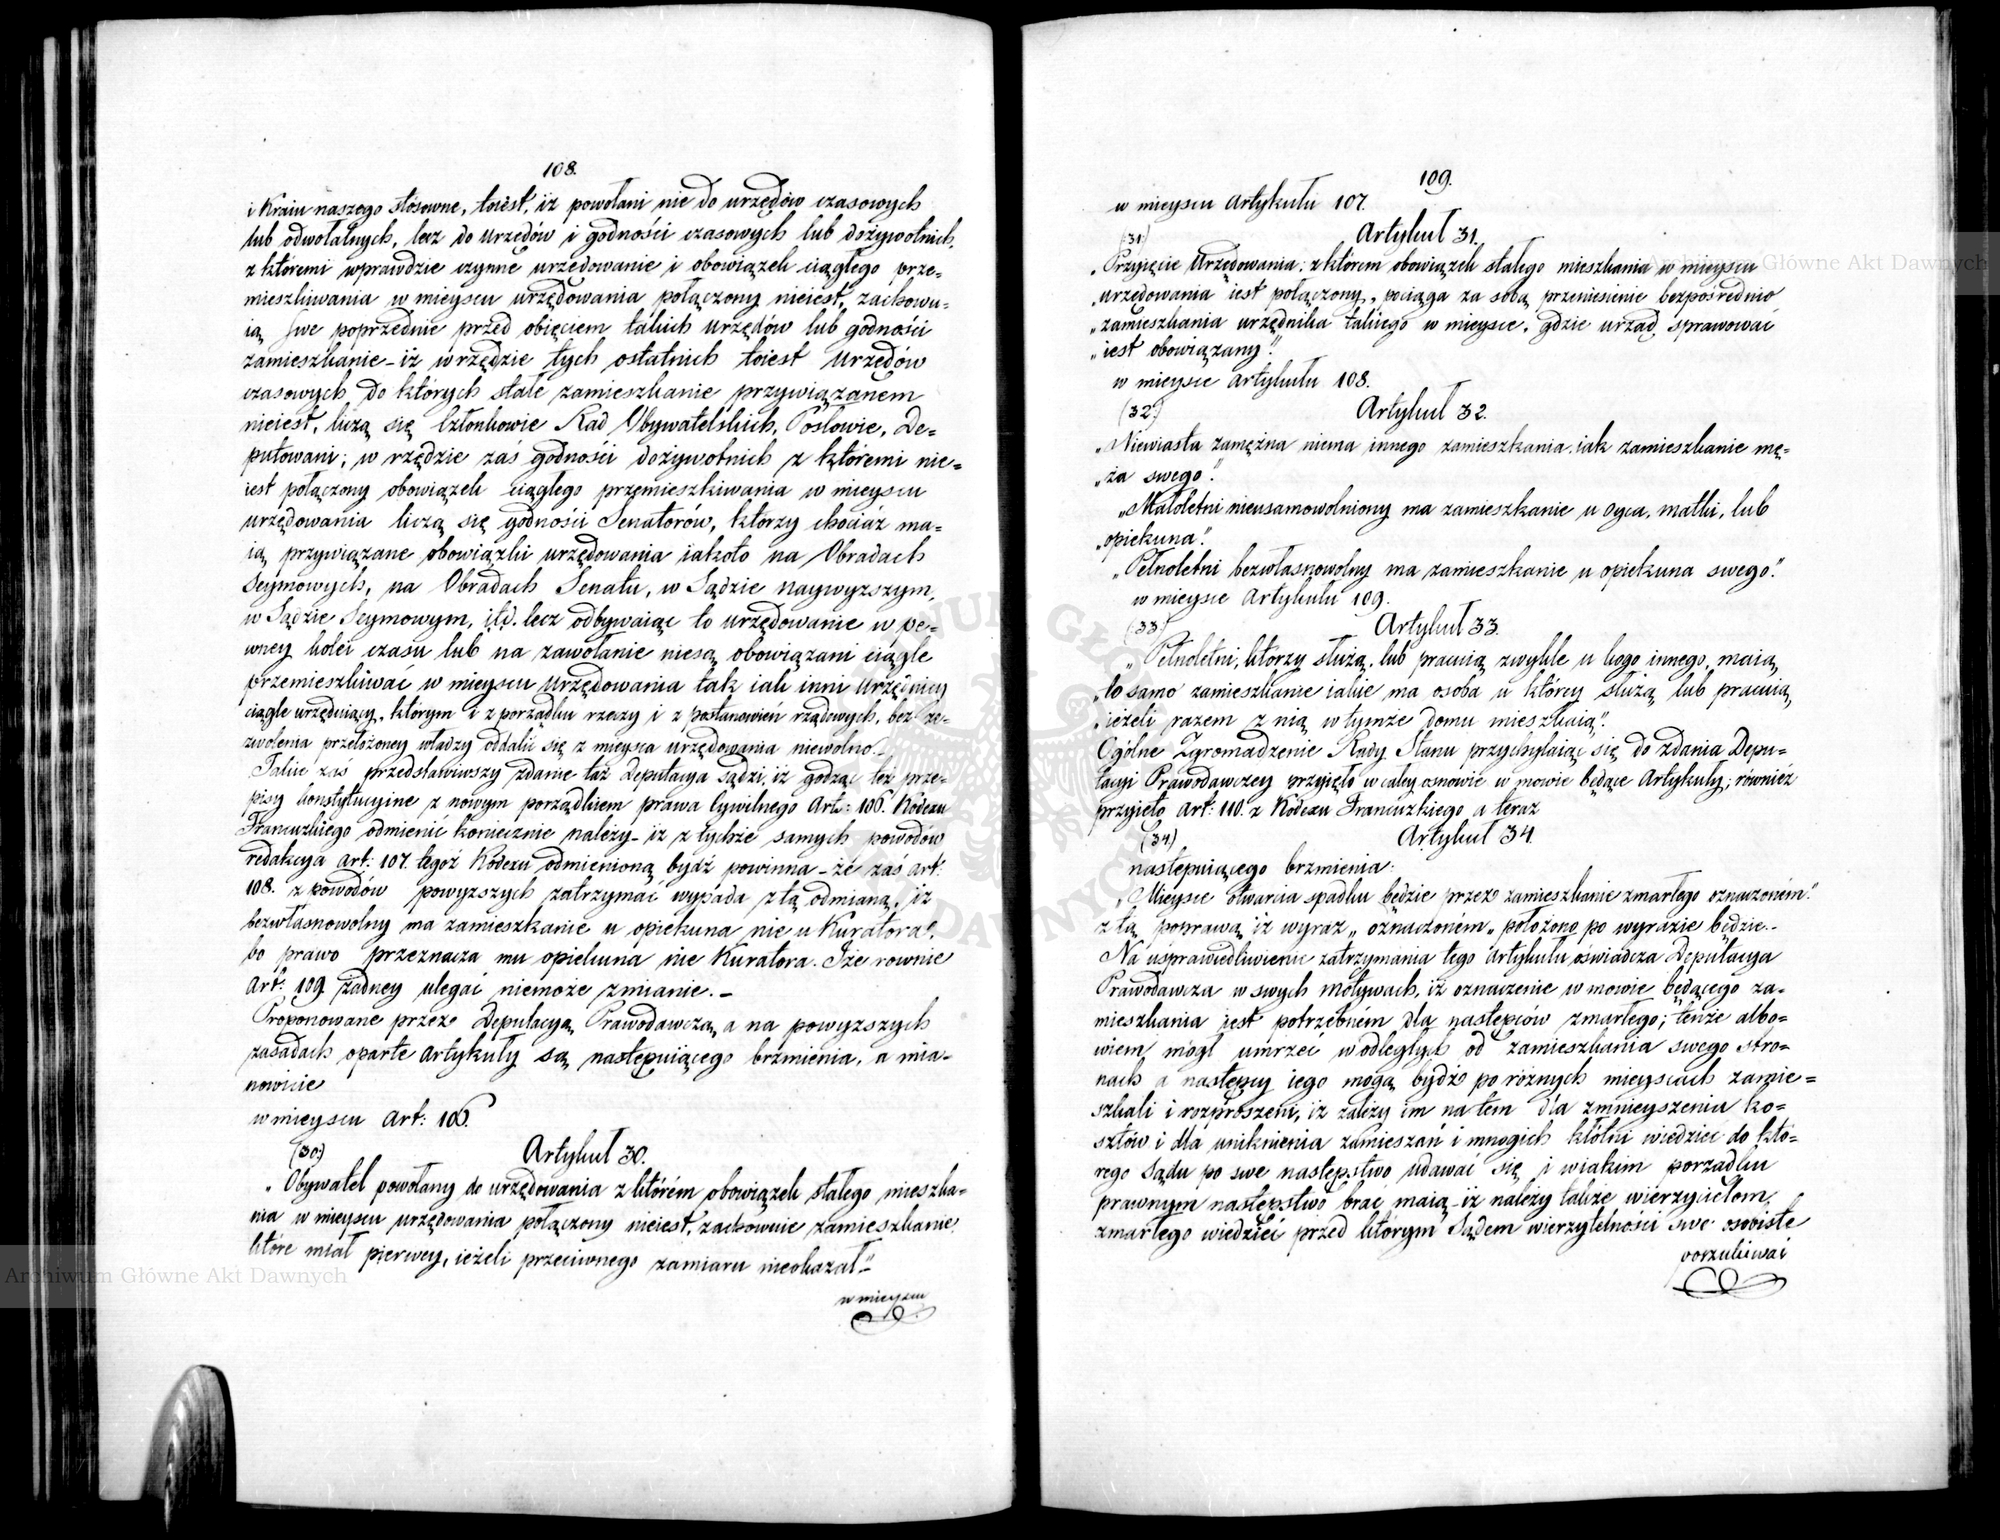 108.
i Kraiu naszego stósowne, toiést, iż powołani nie do urzędów czasowych
lub odwołalnych, lecz do urzędów i godności czasowych lub dożywotnich,
z któremi wprawdzie czynne urzędowanie i obowiązek ciągłego prze=
mieszkiwania w mieyscu urzędowania połączony nieiest, zachowu=
ią swe poprzednie przed obięciem takich urzędów lub godności
zamieszkanie – iż w rzędzie tych ostatnich toiest urzędów
czasowych do których stałe zamieszkanie przywiązanem
nieiest, liczą się Członkowie Rad Obywatelskich, Posłowie, De=
putowani; w rzędzie zaś godności dożywotnich z któremi nie=
iest połączony obowiązek ciągłego przemieszkiwania w mieyscu
urzędowania liczą się godności Senatorów, którzy chociaż ma=
ią przywiązane obowiązki urzędowania iakoto na Obradach
Seymowych, na Obradach Senatu, w Sądzie naywyższym,
w Sądzie Seymowym, itd. lecz odbywaiąc to urzędowanie w pe=
wney kolei czasu lub na zawołanie niesą obowiązani ciągle
przemieszkiwać w mieyscu urzędowania tak iak inni urzędnicy
ciągle urzęduiący, którym i z porządku rzeczy i z postanowień rządowych, bez ze=
zwolenia przełożoney władzy oddalić się z mieysca urzędowania niewolno.
Takie zaś przedstawiwszy zdanie taż Deputacya sądzi, iż godząc też prze=
pisy konstytucyjne z nowym porządkiem prawa Cywilnego Art: 106. Kodexu
Francuzkiego odmienić koniecznie należy – iż z tychże samych powodów
redakcya art: 107. tegoż Kodexu odmienioną bydź powinna – że zaś art:
108. z powodów powyższych zatrzymać wypada z tą odmianą, iż
bezwłasnowolny ma zamieszkanie u opiekuna nie u Kuratora,
bo prawo przeznacza mu opiekuna nie Kuratora. Iże rownie
Art: 109 żadney ulegać niemoże zmianie. –
Proponowane przez Deputacyą Prawodawczą a na powyższych
zasadach oparte artykuły są następuiącego brzmienia, a mia=
nowicie
w mieyscu Art: 106.
(30.) Artykuł 30.
„Obywatel powołany do urzędowania z którém obowiązek stałego mieszka=
nia w mieyscu urzędowania połączony nieiest, zachowuie zamieszkanie,
które miał pierwey, ieżeli przeciwnego zamiaru nieokazał.”
w mieyscu
109.
w mieyscu Artykułu 107.
(31.) Artykuł 31.
„Przyięcie Urzędowania, z którém obowiązek stałego mieszkania w mieyscu
„urzędowania iest połączony, pociąga za sobą przeniesienie bezpośrednio
„zamieszkania urzędnika takiego w mieysce, gdzie urząd sprawować
„iest obowiązany.”
w mieysce artykułu 108.
(32.) Artykuł 32.
„Niewiasta zamężna niema innego zamieszkania, iak zamieszkanie mę=
„ża swego.”
„Małoletni nieusamowolniony ma zamieszkanie u oyca, matki, lub
„opiekuna.”
„Pełnoletni bezwłasnowolny ma zamieszkanie u opiekuna swego.”
w mieysce Artykułu 109.
(33.) Artykuł 33.
„Pełnoletni, którzy służą, lub pracuią zwykle u kogo innego, maią
„to samo zamieszkanie iakie ma osoba u którey służą lub pracuią,
„ieżeli razem z nią w tymże domu mieszkaią.”
Ogólne Zgromadzenie Rady Stanu przychylaiąc się do zdania Depu=
tacyi Prawodawczey przyięło w całey osnowie w mowie będące Artykuły; również
przyięto Art: 110. z Kodexu Francuzkiego a teraz
(34.) Artykuł 34.
następuiącego brzmienia:
„Mieysce otwarcia spadku będzie przez zamieszkanie zmarłego oznaczoném.”
z tą poprawą iż wyraz „oznaczoném„ położono po wyrazie będzie. –
Na usprawiedliwienie zatrzymania tego Artykułu oświadcza Deputacya
Prawodawcza w swych motywach, iż oznaczenie w mowie będącego za=
mieszkania iest potrzebném dla następców zmarłego; tenże albo=
wiem mógł umrzeć w odległych od zamieszkania swego stro=
nach a następcy iego mogą bydź po różnych mieyscach zamie=
szkali i rozproszeni, iż zależy im na tem dla zmnieyszenia ko=
sztów i dla uniknienia zamieszań i mnogich kłótni wiedzieć do któ=
rego Sądu po swe następstwo udawać się i w iakim porządku
prawnym następstwo brać maią – iż należy także wierzycielom
zmarłego wiedzieć przed którym Sądem wierzytelności swe osobiste
poszukiwać
Archiwum Główne Akt Dawnych
Archiwum Główne Akt Dawnych